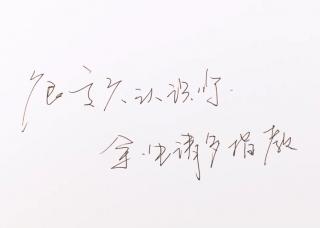 很高兴认识你.
余生请多指教